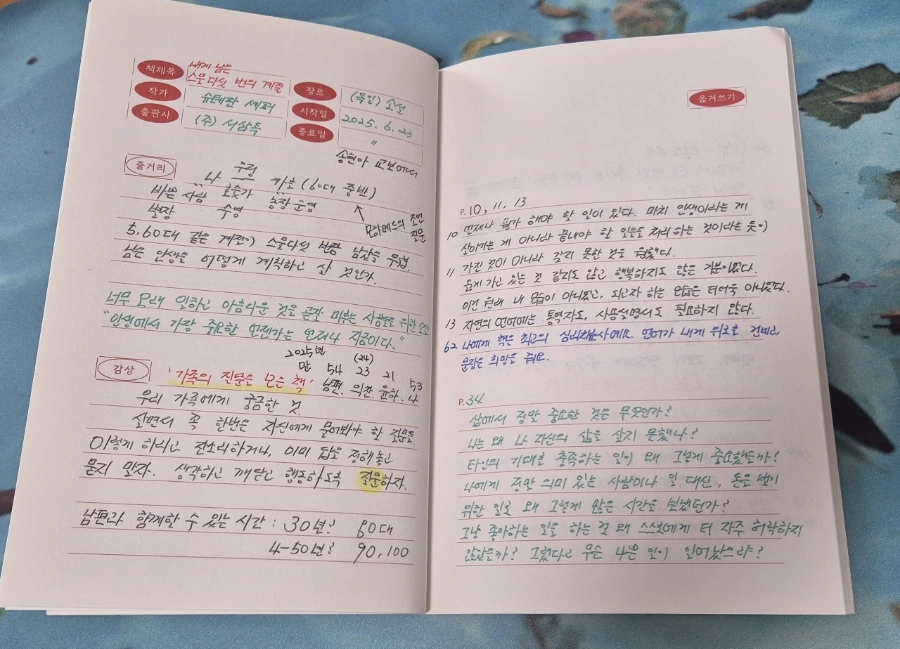 책제목 내게 남은
스물다섯 번의 계절
작가 슈테판 셰퍼
출판사 (주) 서삼독
장르 (독일) 소설
시작일 2025. 6. 23
종료일 "
교보에서
줄거리
우연
나 카를 (60대 중반)
바쁜 사람 농장 운영
출장 수영
5.60대 같은 계절이 스물다섯 번쯤 남았을 무렵,
남은 인생을 어떻게 계획하고 살 것인가.
너무 오래 일하고 아름다운 것은 끝까지 미루는 사람들을 위한
"인생에서 가장 중요한 언젠가는 언제나 지금이다."
감상
2025년 (24)
만 54 23 21 53
'가족의 질문을 모은 책' 남편. 의찬. 윤하. 나
우리 가족에게 궁금한 것.
살면서 꼭 한번은 자신에게 물어봐야 할 질문들
이렇게 하라고 전도하거나, 이미 답을 정해 놓고
묻지 말자. 생각하고 깨닫고 행동하도록 질문하자.
남편과 함께할 수 있는 시간 : 30년? 80대
4-50년? 90, 100
옮겨쓰기
P. 10, 11. 13
10 언제나 뭔가 해야 할 일이 있다. 마치 인생이라는 게
살아가는 게 아니라 끝내야 할 일들을 처리하는 것이라는 듯이
11 가진 것이 아니라 갖지 못한 것을
쥐고 있는 것 같지도 않고 행복하지도 않은 기분이었다.
이전 현재 내 모습이 아니었고, 되고자 하는 모습은 더더욱 아니었다.
13 자연의 언어에는 통역자도, 사용설명서도 필요하지 않다.
62 나에게 책은 최고의 심리치료사예요. 언어가 내게 위로를 건네고
문장은 희망을 줘요.
P. 34
삶에서 정말 중요한 것은 무엇인가?
나는 왜 나 자신의 삶을 살지 못했나?
타인의 기대를 충족하는 일이 왜 그렇게 중요했을까?
나에게 정말 의미 있는 사람이나 일 대신, 돈을 벌기
위한 일로 왜 그렇게 많은 시간을 보냈던가?
그냥 좋아하는 일을 하는 걸 왜 스스로에게 더 자주 허락하지
않았을까? 그랬다고 무슨 나쁜 일이 일어났으랴?